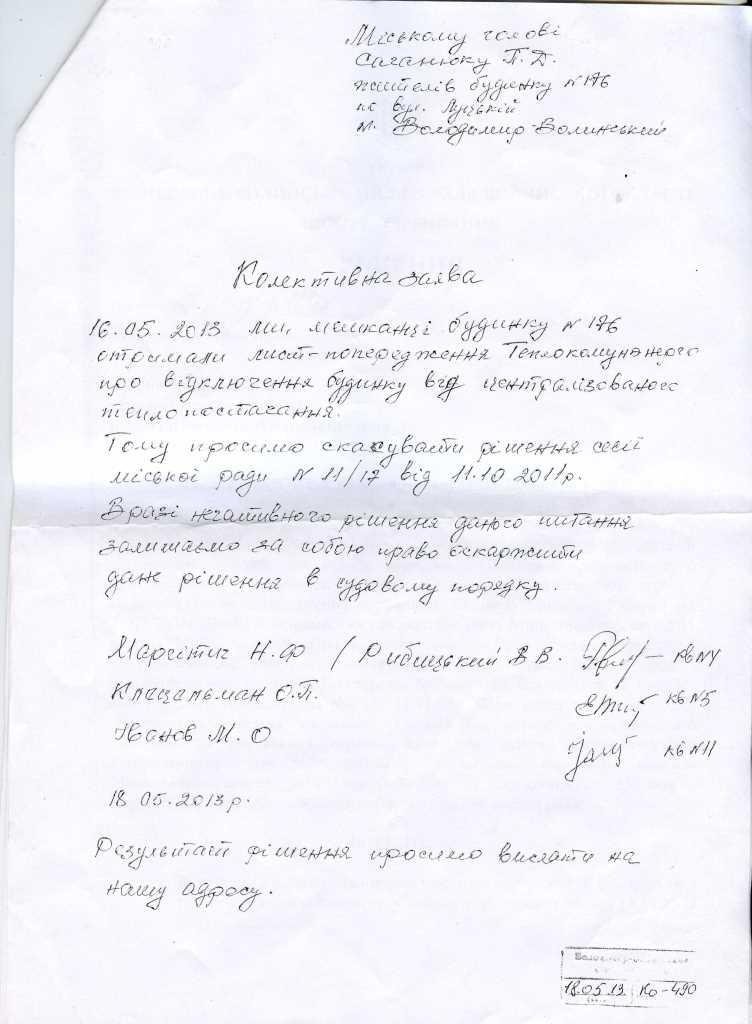 Міському голові
Саганюку П. Д.
жителів будинку №176
по вул. Луцькій
м. Володимир-Волинський
Колективна заява
16.05.2013 ми, мешканці будинку №176
отримали лист-попередження Теплокомуненерго
про відключення будинку від централізованого
теплопостачання.
Тому просимо скасувати рішення сесії
міської ради № 11/17 від 11.10 2011р.
В разі негативного рішення даного питання
залишаємо за собою право оскаржити
дане рішення в судовому порядку.
Н.Ф / Рибицький В В. кв №4
О.П. кв №5
Іванов М. О кв №11
18 05.2013р.
Результат рішення просимо вислати на
нашу адресу.
18.05.13 Ко-490